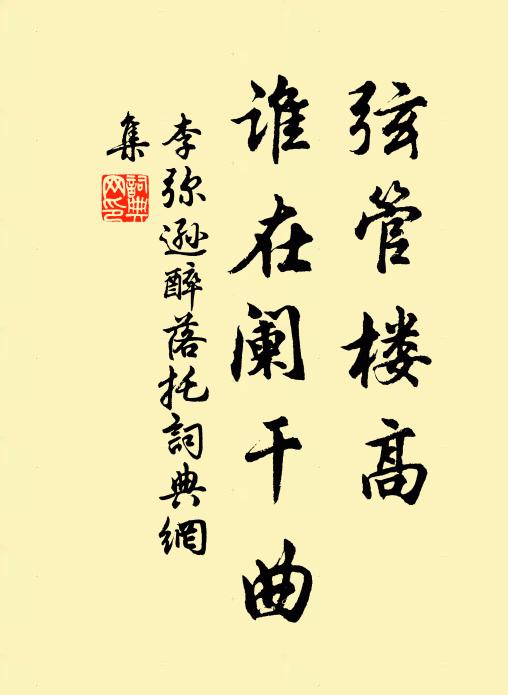 弦管楼高
谁在阑干曲
李弥逊醉落托詞典網
集
詞典
网印